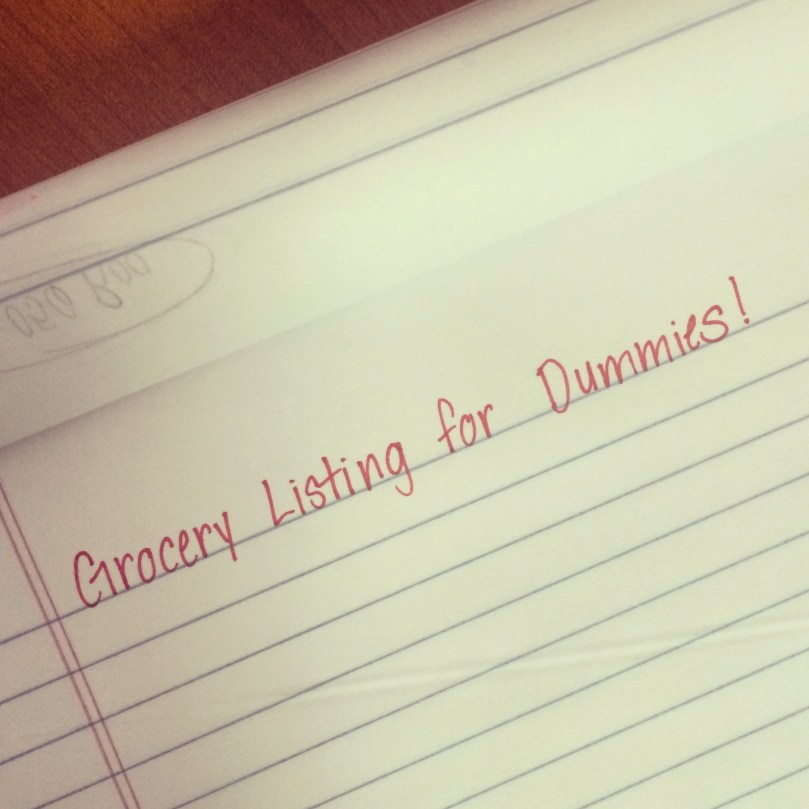 Grocery Listing for Dummies!